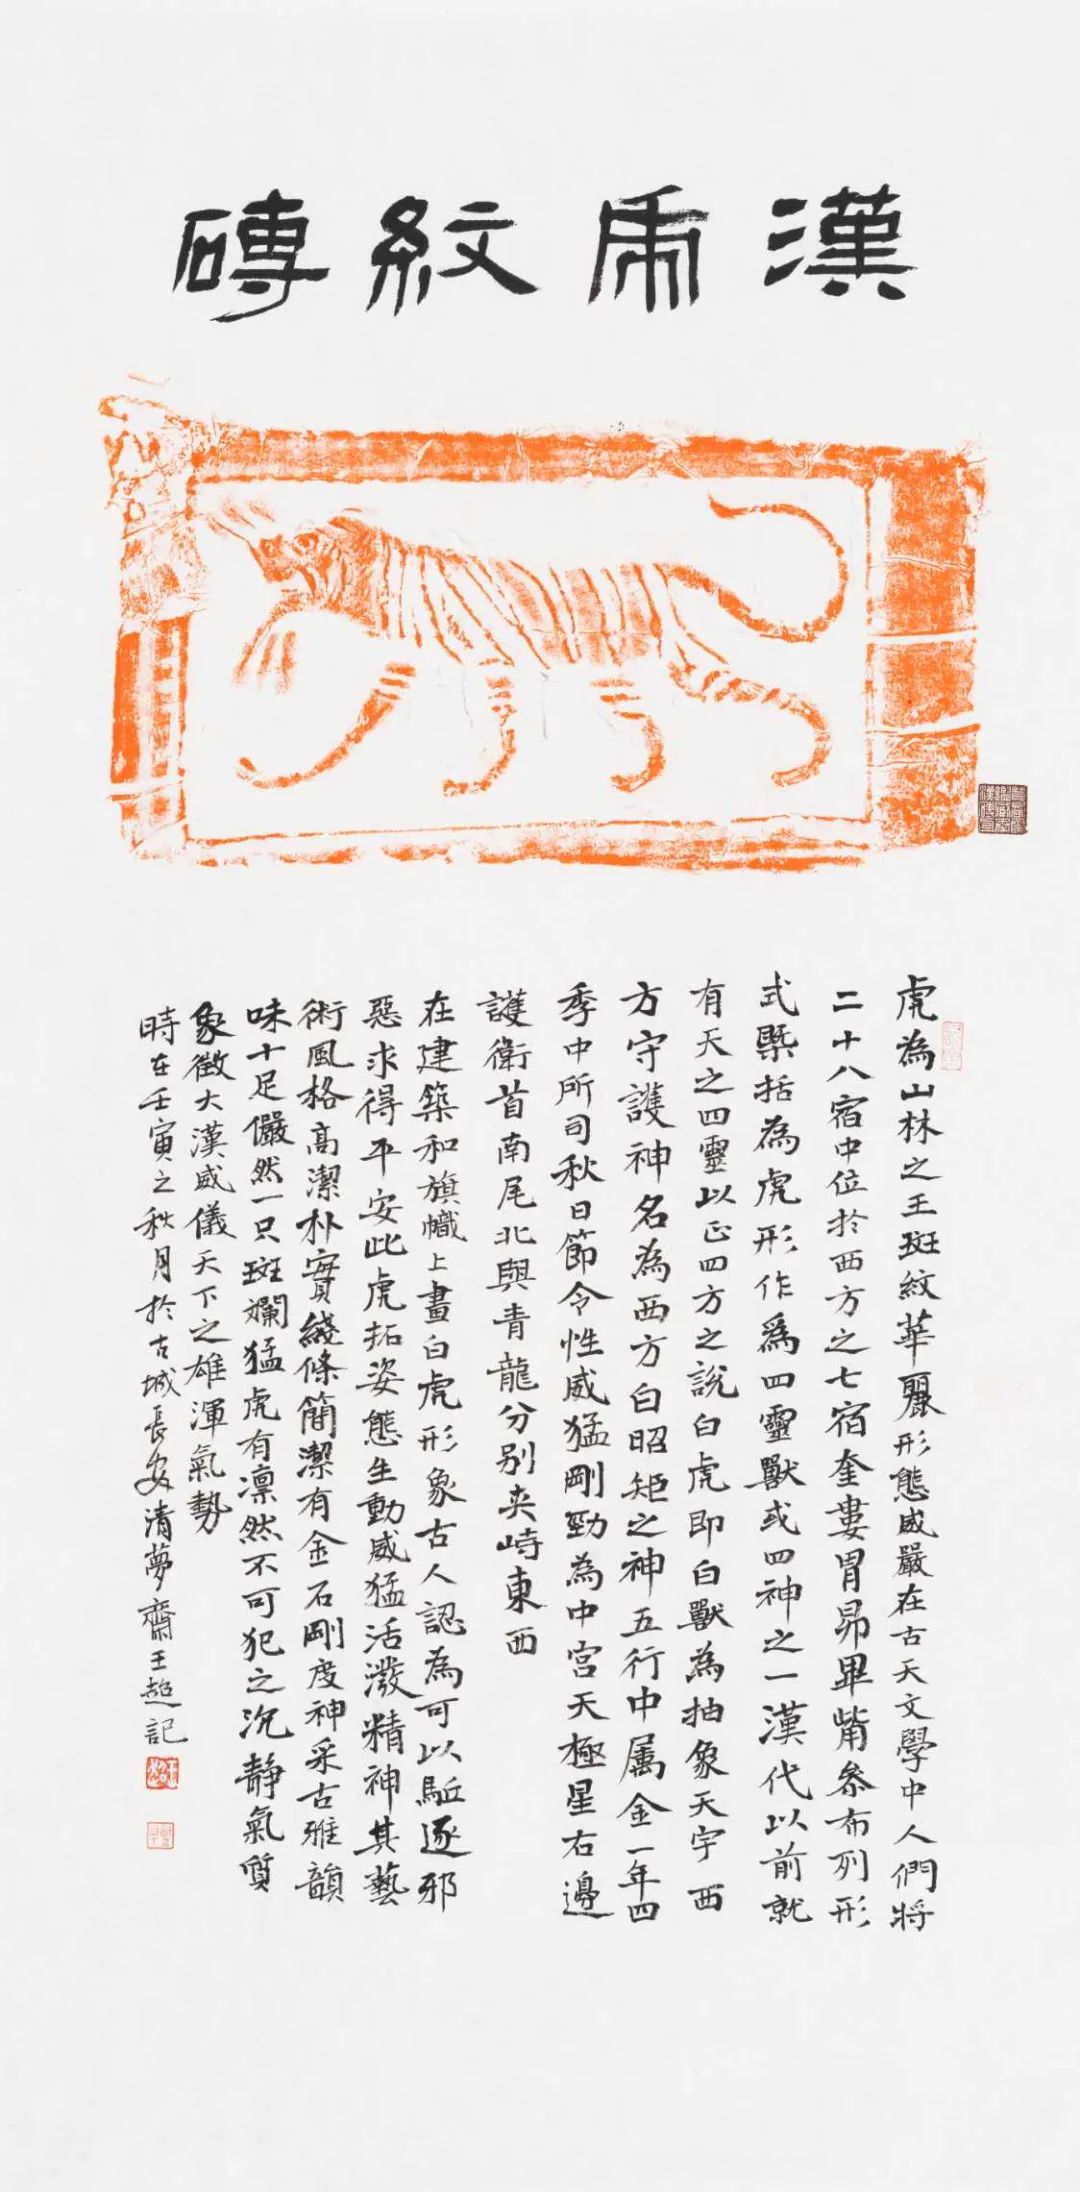 漢虎紋磚
虎為山林之王斑紋華麗形態威嚴在古天文學中人們將
二十八宿中位於西方之七宿奎婁胃昴畢觜參布列形
式槩括為虎形作爲四靈獸或四神之一漢代以前就
有天之四靈以正四方之說白虎即白獸為抽象天宇西
方守護神名為西方白昭矩之神五行中属金一年四
季中所司秋日節令性威猛剛勁為中宮天極星右邊
護衛首南尾北與青龍分别夾峙東西
在建築和旗幟上畫白虎形象古人認為可以駈逐邪
惡求得平安此虎拓姿態生動威猛活潑精神其藝
術風格高潔朴實綫條簡潔有金石剛度神采古雅韻
味十足儼然一只斑斕猛虎有凛然不可犯之沉靜氣質
象徵大漢威儀天下之雄渾氣勢
時在壬寅之秋月於古城長安清夢齋王超記